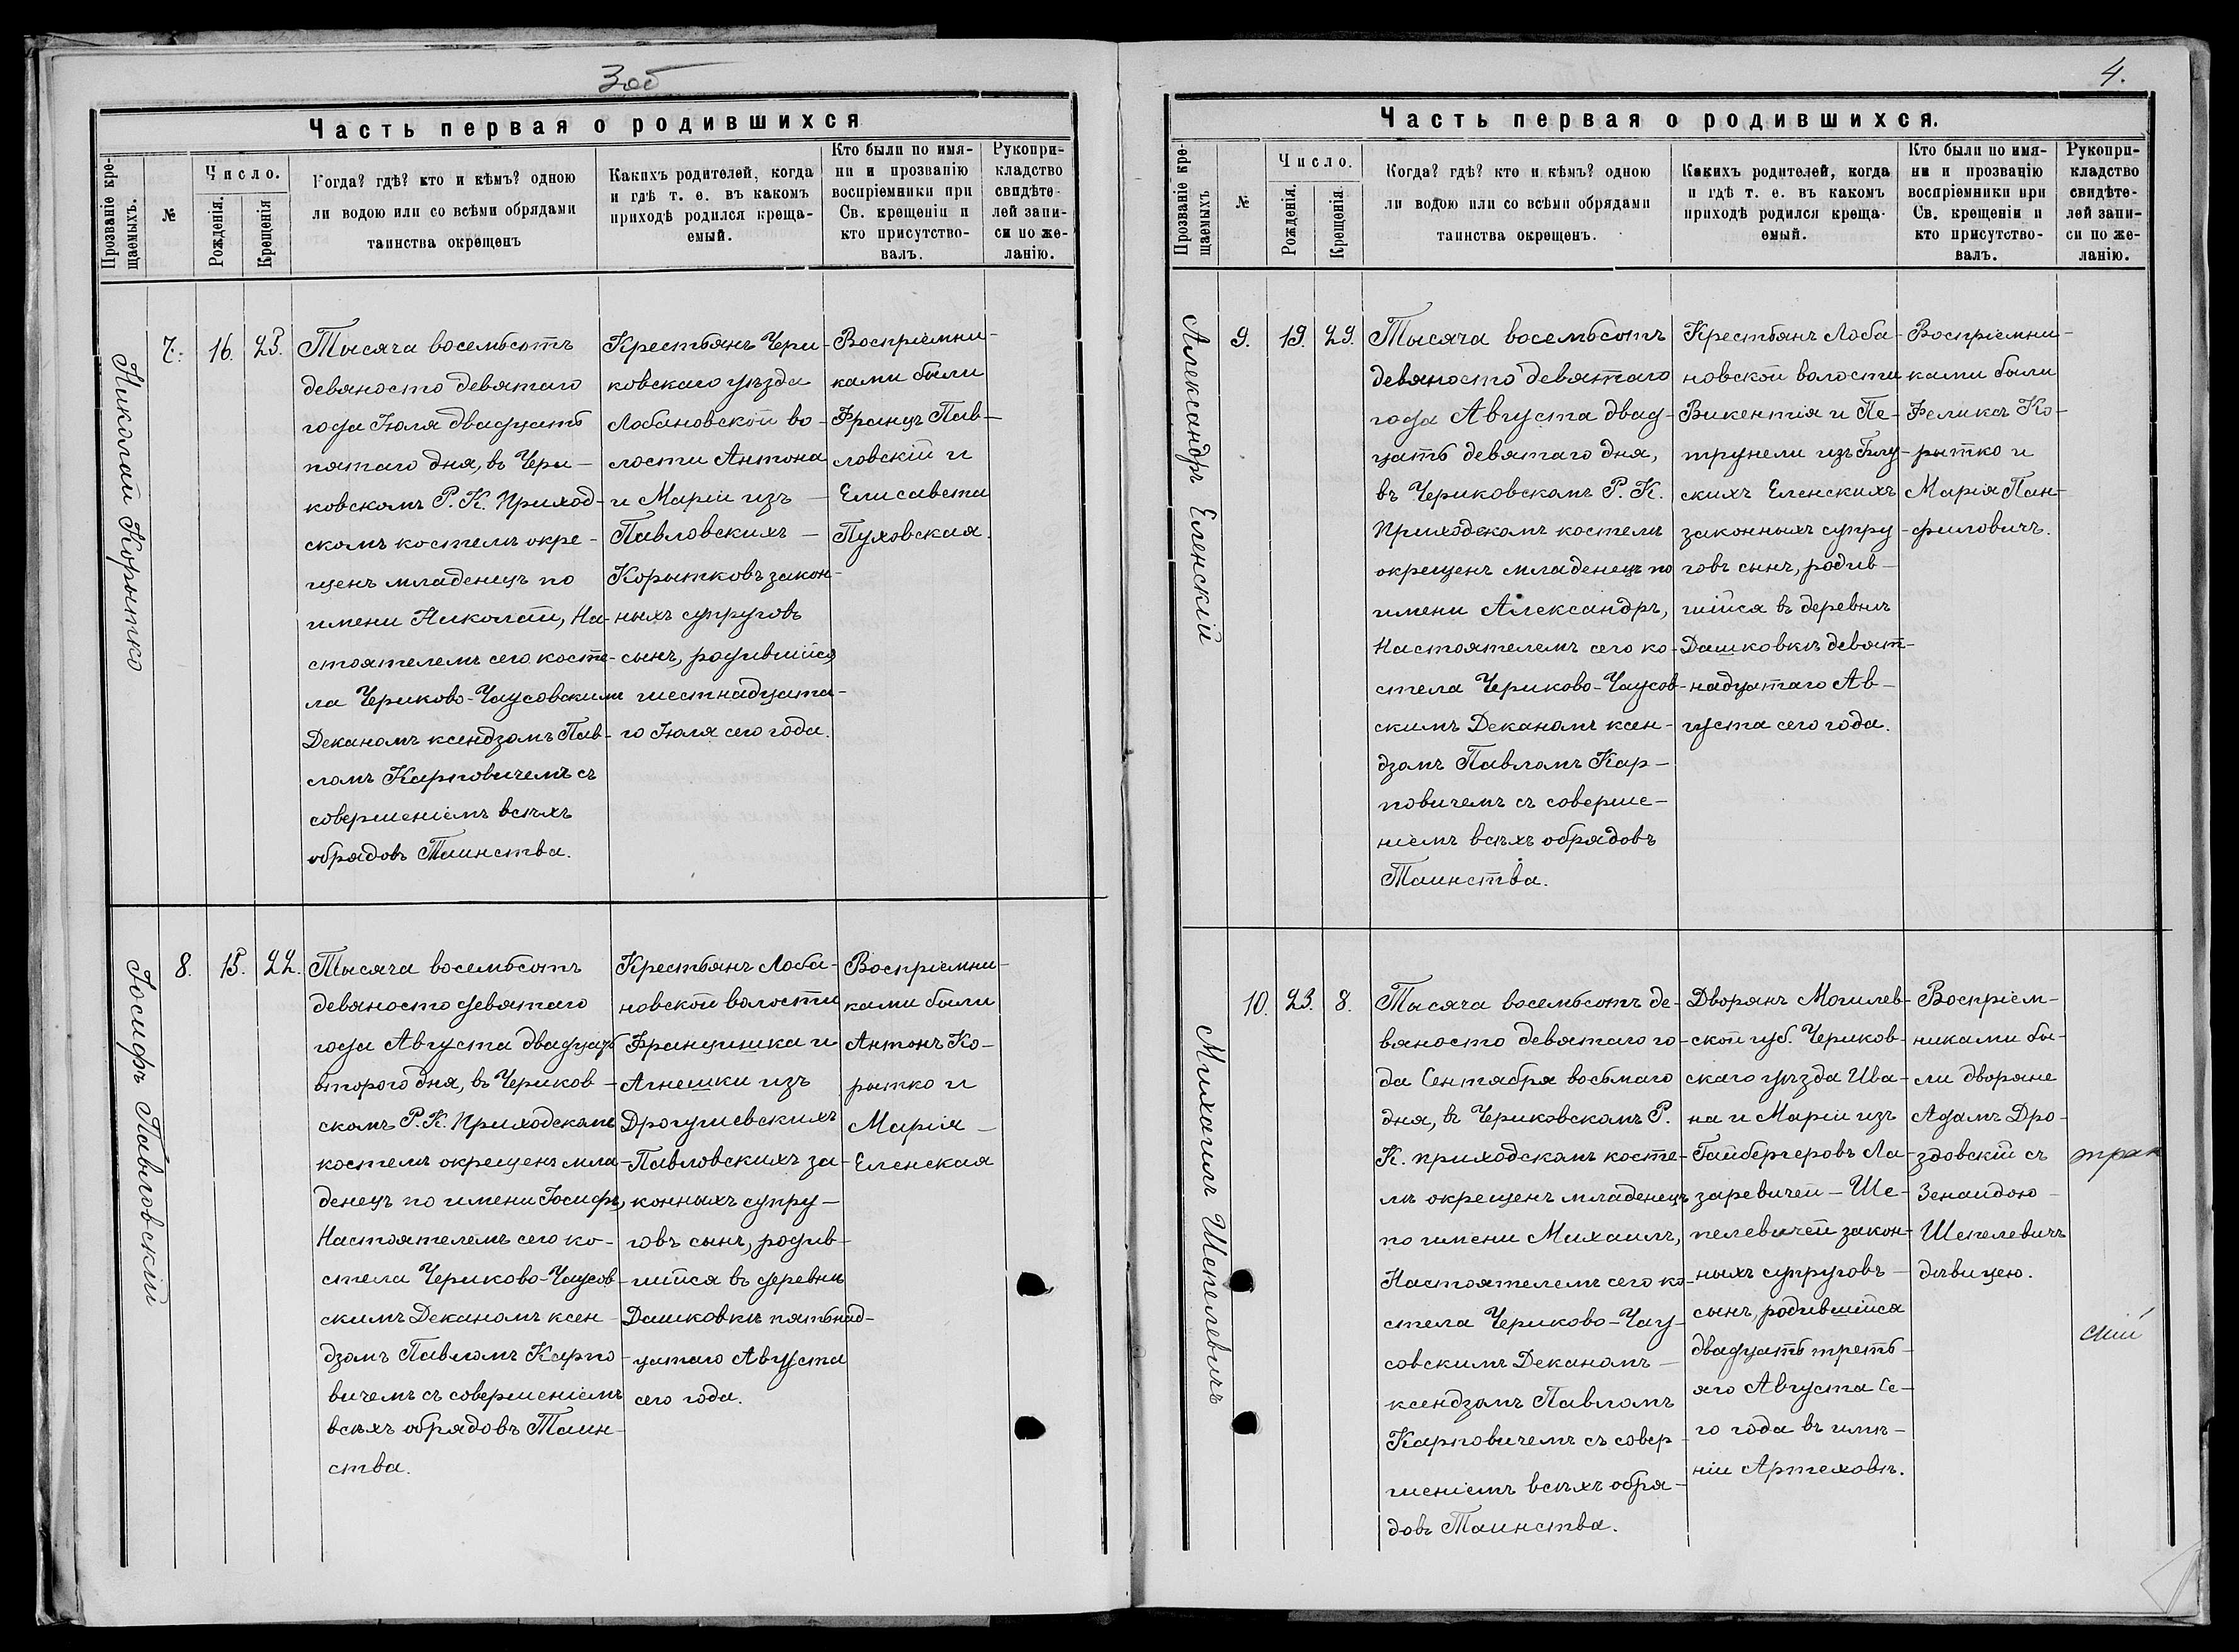 3об
Часть первая о родившихся
Прозваніе кре-
щаемыхъ.
№
Число.
Рожденія.
Крещенія
Когда? гдѣ? кто и кѣмъ? одною
ли водою или со всѣми обрядами
таинства окрещенъ
Какихъ родителей, когда
и гдѣ т. е. въ какомъ
приходѣ родился креща-
емый.
Кто были по имя-
ни и прозванію
воспріемники при
Св. крещеніи и
кто присутство-
валъ.
Рукопри-
кладство
свидѣте-
лей запи-
си по же-
ланію.
Николай Корытко
7.
16.
25.
Тысяча восемьсотъ
девяносто девятаго
года Іюля двадцать
пятаго дня, въ Чери-
ковскомъ Р. К. Приход-
скомъ костелѣ окре-
щенъ младенецъ по
имени Николай, На-
стоятелемъ сего косте-
ла Чериково-Чаусовскимъ
Деканомъ ксендзомъ Пав-
ломъ Карповичемъ съ
совершеніемъ всѣхъ
обрядовъ Таинства.
Крестьянъ Чери-
ковскаго уѣзда
Лобановской во-
лости Антона
и Маріи изъ
Павловскихъ -
Корытковъ закон-
ныхъ супруговъ
сынъ, родившійся
шестнадцата-
го Іюля сего года.
Воспріемни-
ками были
Францъ Пав-
ловскій и
Елисавета
Пуховская.
Іосифъ Павловскій
8.
15.
22.
Тысяча восемьсотъ
девяносто девятаго
года Августа двадцать
второго дня, въ Чериков-
скомъ Р. К. Приходскомъ
костелѣ окрещенъ мла-
денецъ по имени Іосифъ,
Настоятелемъ сего ко-
стела Чериково-Чаусов-
скимъ Деканомъ ксен-
дзомъ Павломъ Карпо-
вичемъ съ совершеніемъ
всѣхъ обрядовъ Таин-
ства.
Крестьянъ Лоба-
новской волости
Францишка и
Агнешки изъ
Дрогушевскихъ
Павловскихъ за-
конныхъ супру-
говъ сынъ, родив-
шійся въ деревнѣ
Дашковкѣ пятьнад-
цатаго Августа
сего года.
Воспріемни-
ками были
Антонъ Ко-
рытко и
Марія -
Еленская
4.
Часть первая о родившихся.
Прозваніе кре-
щаемыхъ
№
Число.
Рожденія.
Крещенія.
Когда? гдѣ? кто и кѣмъ? одною
ли водою или со всѣми обрядами
таинства окрещенъ.
Какихъ родителей, когда
и гдѣ т. е. въ какомъ
приходѣ родился креща-
емый.
Кто были по имя-
ни и прозванію
воспріемники при
Св. крещеніи и
кто присутство-
валъ.
Рукопри-
кладство
свидѣте-
лей запи-
си по же-
ланію.
Александръ Еленскій
9.
19.
29.
Тысяча восемьсотъ
девяносто девятаго
года Августа двад-
цать девятаго дня,
въ Чериковскомъ Р. К.
Приходскомъ костелѣ
окрещенъ младенецъ по
имени Александръ,
Настоятелемъ сего ко-
стела Чериково-Чаусов-
скимъ Деканомъ ксен-
дзомъ Павломъ Кар-
повичемъ съ соверше-
ніемъ всѣхъ обрядовъ
Таинства.
Крестьянъ Лоба-
новской волости
Викентія и Пе-
трунели изъ
скихъ Еленскихъ
законныхъ супру-
говъ сынъ, родив-
шійся въ деревнѣ
Дашковкѣ девят-
надцатаго Ав-
густа сего года.
Воспріемни-
ками были
Феликсъ Ко-
рытко и
Марія Пан-
филовичъ.
Михаилъ Шепелевичъ
10.
23.
8.
Тысяча восемьсотъ де-
вяносто девятаго го-
да Сентября восьмаго
дня, въ Чериковскомъ Р.
К. приходскомъ косте-
лѣ окрещенъ младенецъ
по имени Михаилъ,
Настоятелемъ сего ко-
стела Чериково-Чау-
совскимъ Деканомъ -
ксендзомъ Павломъ
Карповичемъ съ совер-
шеніемъ всѣхъ обря-
довъ Таинства.
Дворянъ Могилев-
ской губ. Чериков-
скаго уѣзда Ива-
на и Маріи изъ
Гайбергеровъ Ла-
заревичей-Ше-
пелевичей закон-
ныхъ супруговъ -
сынъ, родившійся
двадцать треть-
яго Августа се-
го года въ имѣ-
ніи Артеховѣ.
Воспріем-
никами бы-
ли дворяне
Адамъ Дро-
здовскій съ
Зенаидою -
Шепелевичъ
дѣвицею.